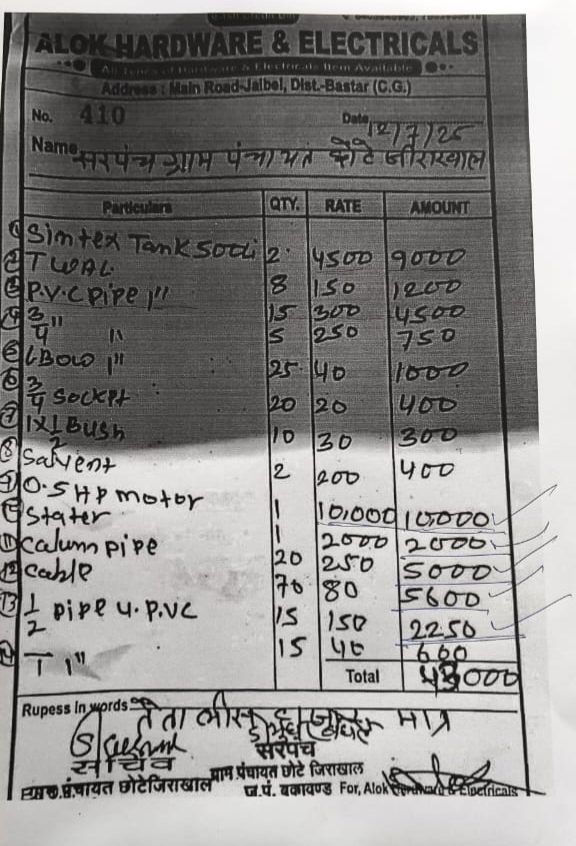 ALOK HARDWARE & ELECTRICALS
All Types of Hardware & Electricals Item Available
Address : Main Road-Jaibel, Dist.-Bastar (C.G.)
No. 410 Date 12/7/25
Name सरपंच ग्राम पंचायत छोटे जीराखाल
Particulars QTY. RATE AMOUNT
① Simtex Tank 500Li 2 4500 9000
② T WAL 8 150 1200
③ P.V.C pipe 1" 15 300 4500
④ 3/4" 11 5 250 750
⑤ LBOW 1" 25 40 1000
⑥ 3/4 Socket 20 20 400
⑦ 1x1/2 Bush 10 30 300
⑧ Salvent 2 200 400
⑨ 0.5 HP motor 1 10,000 10,000
⑩ Stater 1 2000 2000
⑪ Calum pipe 20 250 5000
⑫ Cable 70 80 5600
⑬ 1/2 pipe U.PVC 15 150 2250
⑭ T 1" 15 40 600
Total 43000
Rupess in words मात्र
सचिव सरपंच
ग्राम पंचायत छोटे जिराखाल
पंचायत छोटेजिराखाल ज.पं. बकावण्ड For, Alok Hardware & Electricals